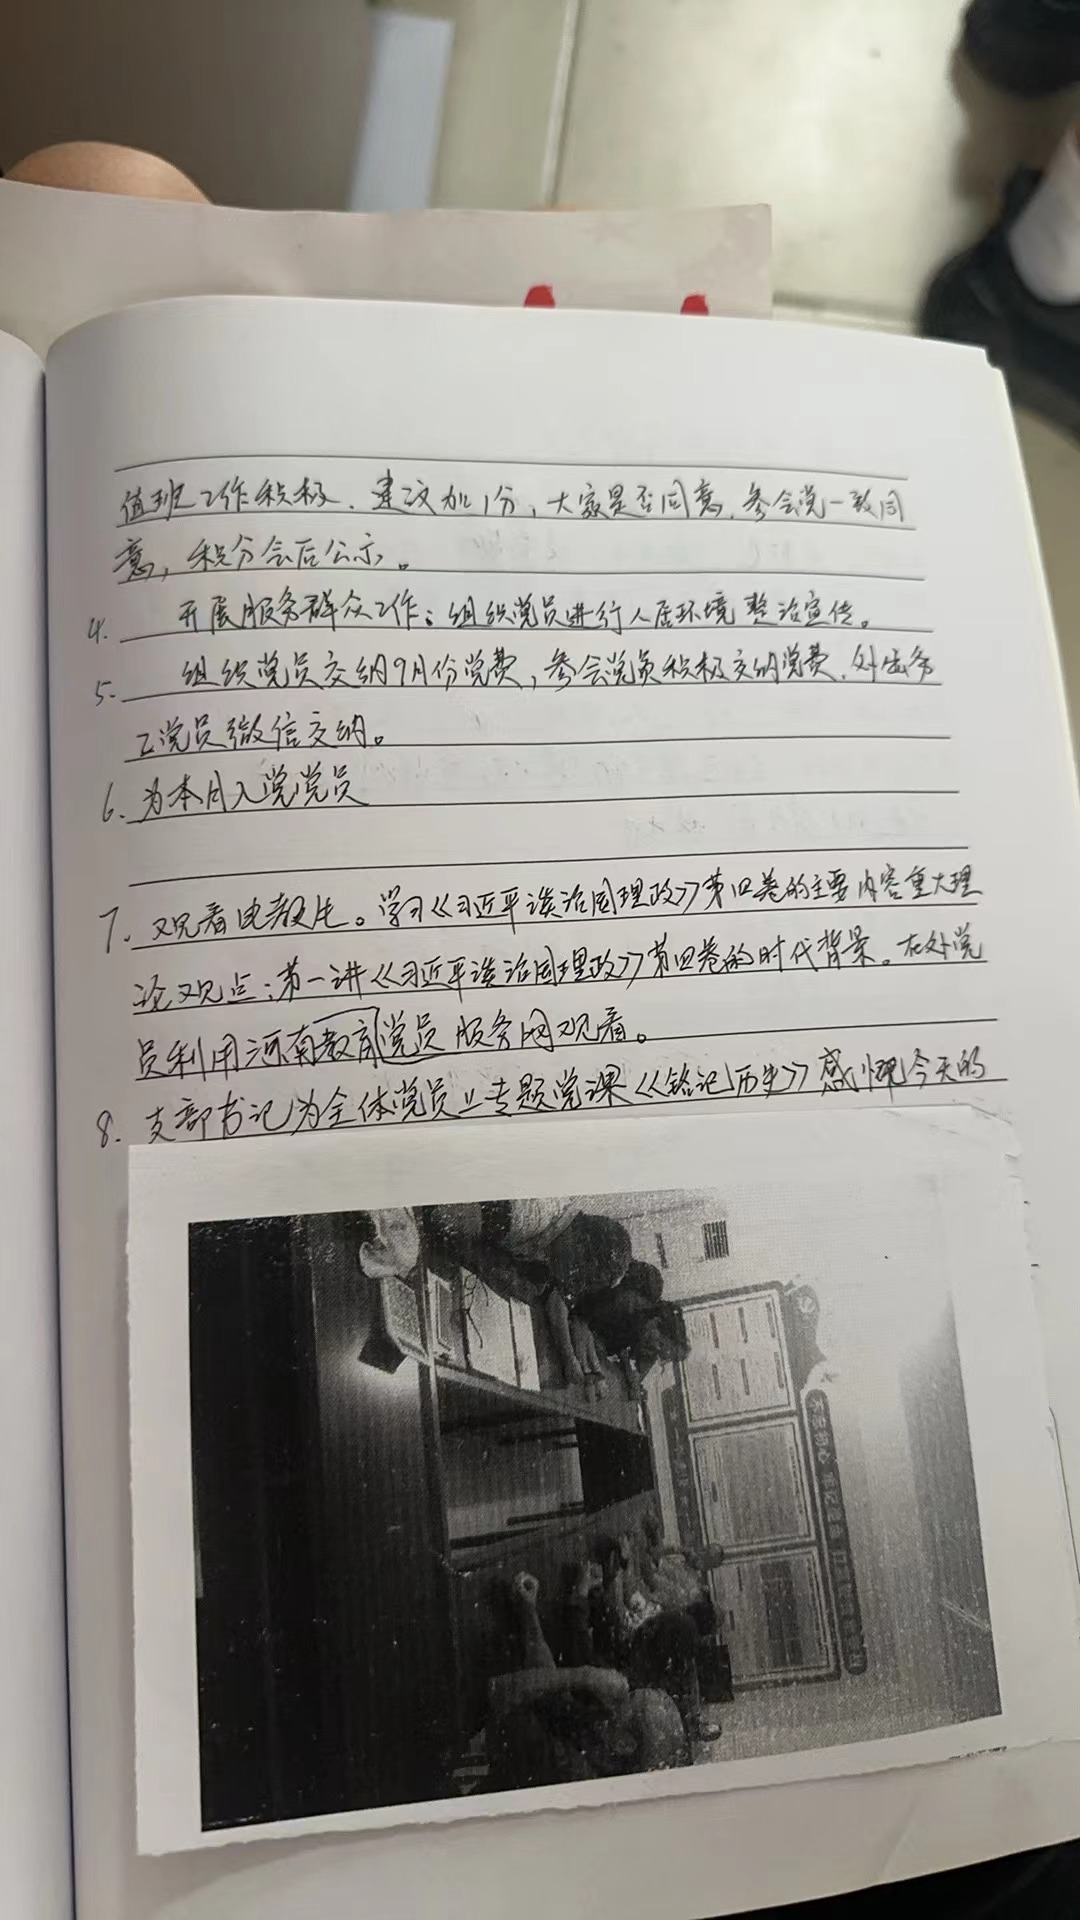 值班工作积极，建议加1分，大家是否同意，参会党一致同
意，积分会后公示。
4. 开展服务群众工作：组织党员进行人居环境整治宣传。
5. 组织党员交纳9月份党费，参会党员积极交纳党费，外出务
工党员微信交纳。
6. 为本月入党党员
7. 观看电教片。学习《习近平谈治国理政》第四卷的主要内容重大理
论观点：第一讲《习近平谈治国理政》第四卷的时代背景。在外党
员利用河南教育党员服务网观看。
8. 支部书记为全体党员上专题党课《铭记历史》感恩今天的
不忘初心 牢记使命